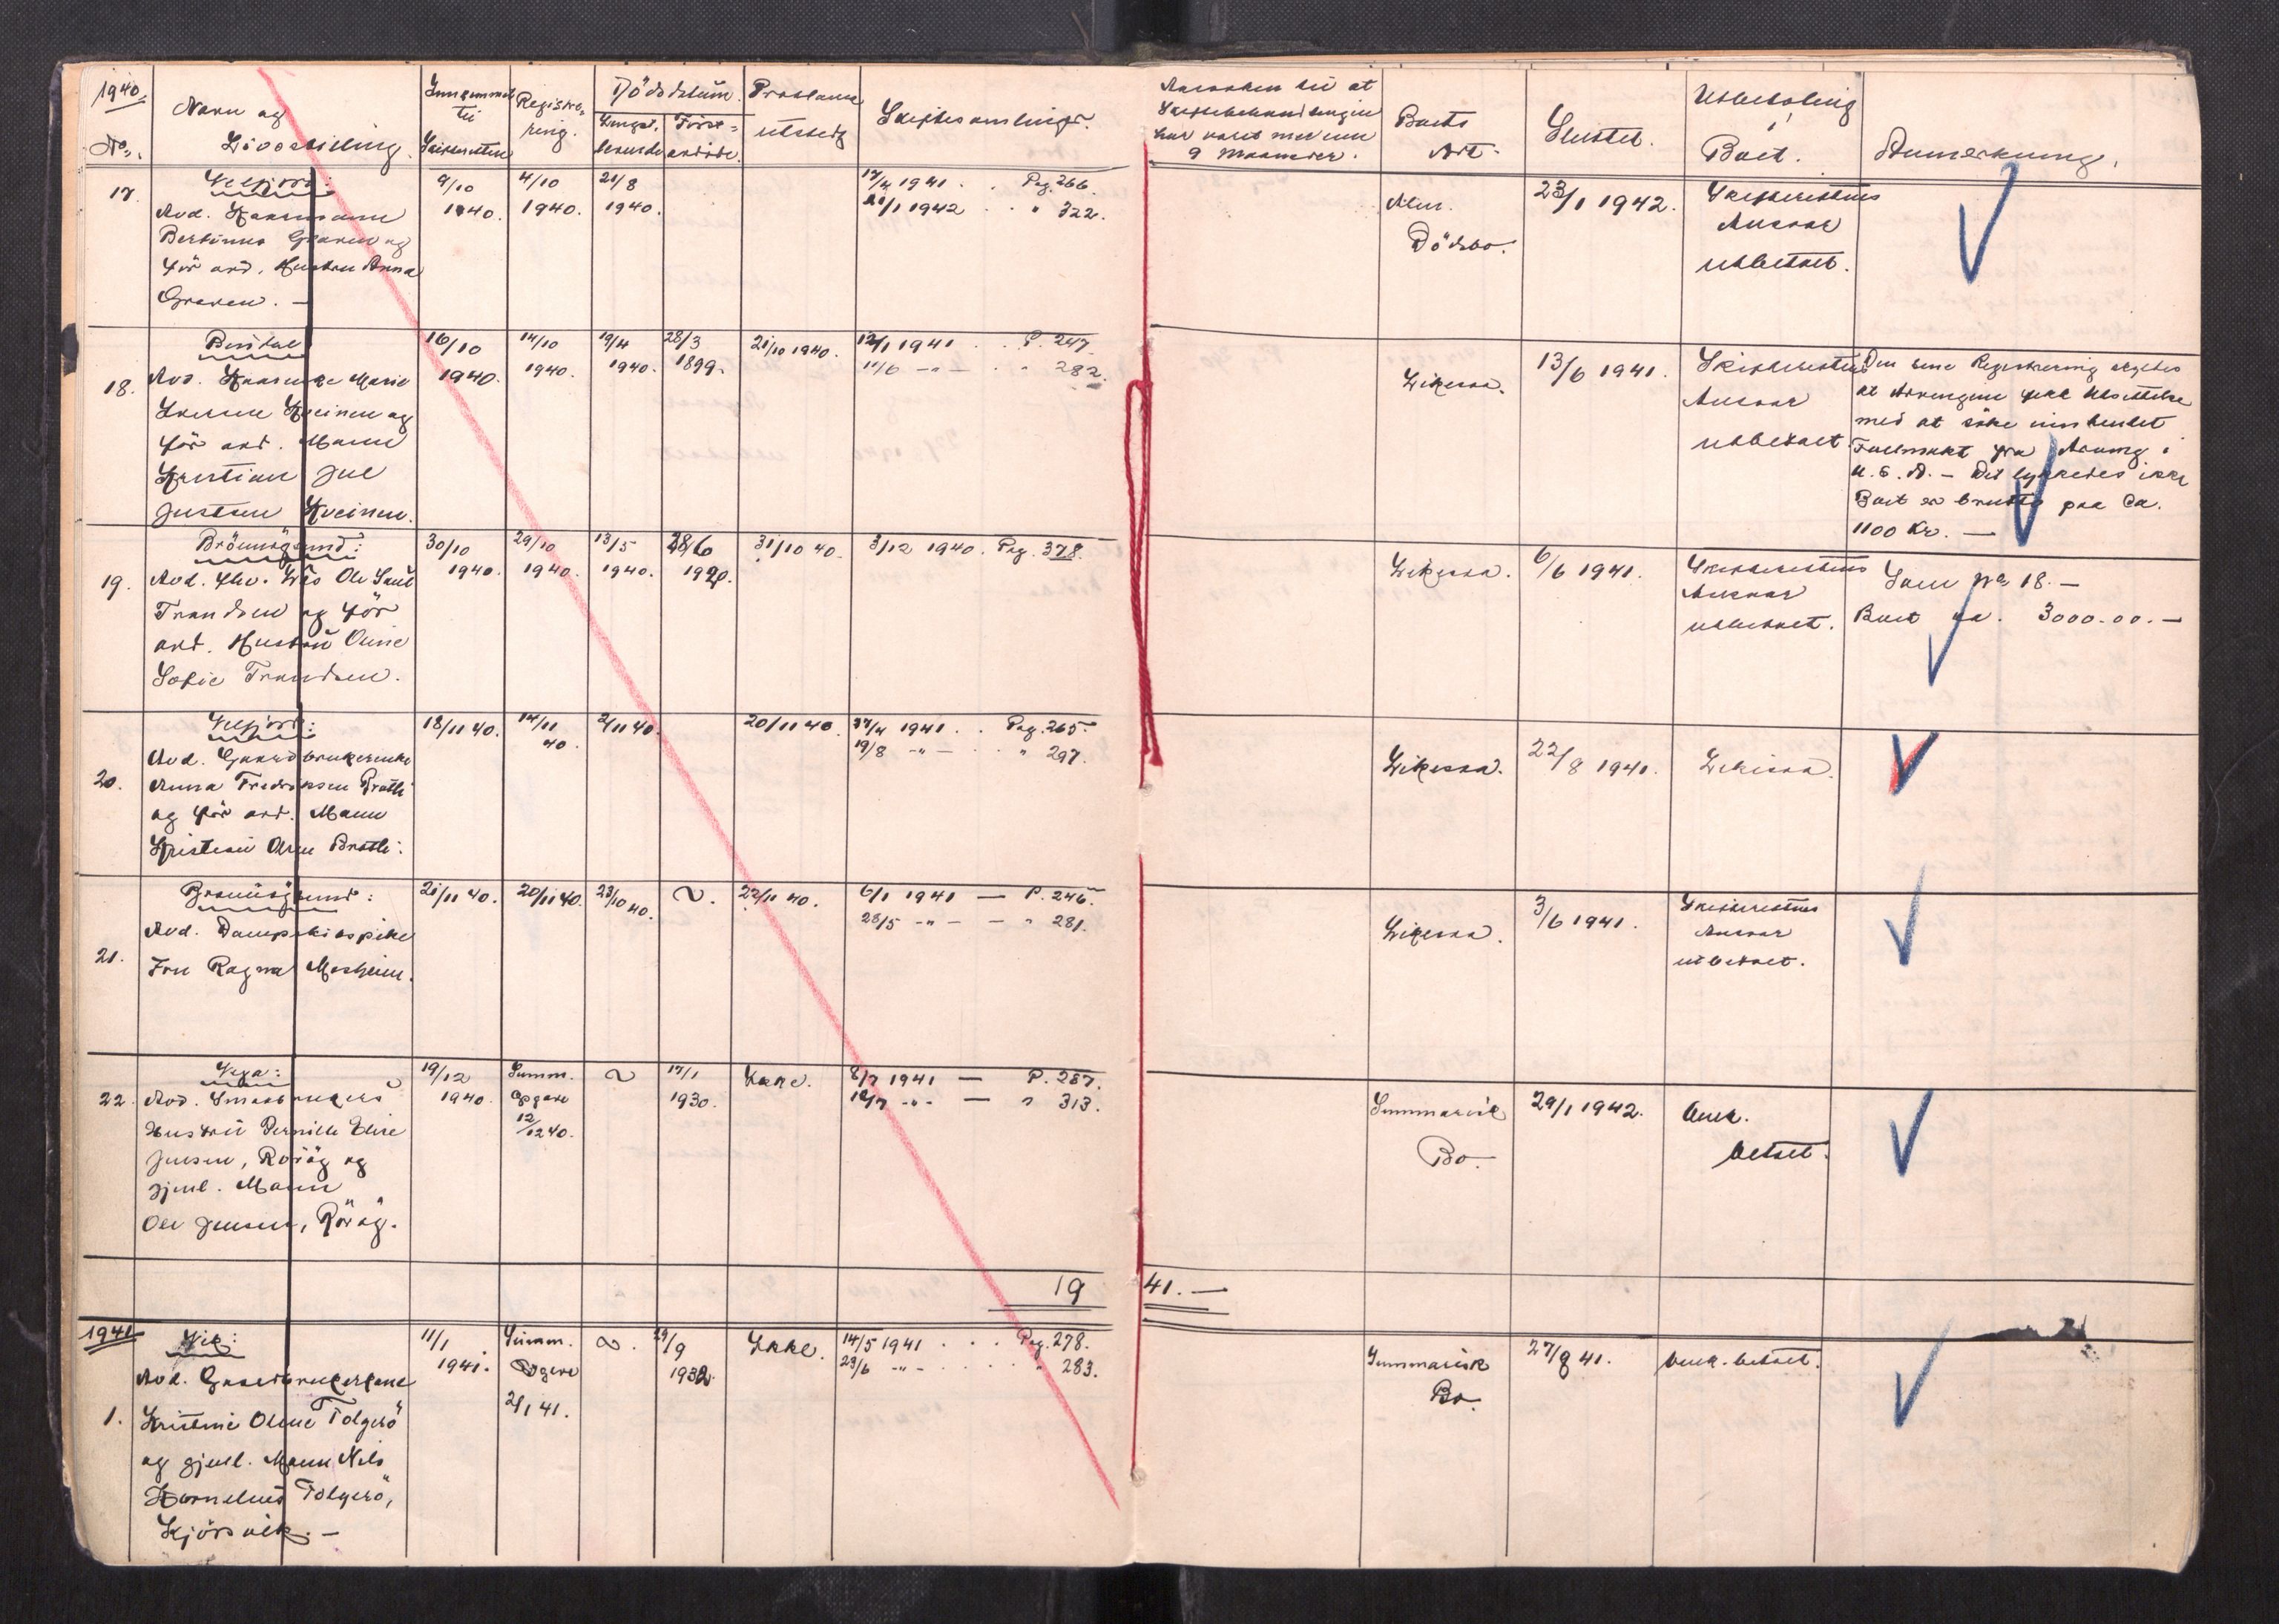 1940.
No.
Navn og
Livsstilling.
Innkommet
til
Skifteretten
Registre-
ring.
Dödsdatum.
Lengst-
levende
Först-
avdöde.
Proklama
utstedt
Skiftesamlinger.
Aarsaken til at
Skiftebehandlingen
har varet mer enn
9 Maaneder.
Boets
Art.
Sluttet.
Utbetaling
i
Boet.
Anmerkning.
17.
Velfjord:
Avd.
Bertinus Graven og
för avd. Hustru Anna
Graven. —
9/10
1940.
4/10
1940.
21/8
1940.
17/4 1941 . . Pag. 266.
21/1 1942 . . " 322.
Alm.
Dödsbo.
23/1 1942.
Skifterettens
Ansvar
utbetalt.
18.
Bindal
Avd. Marie
og
för avd. Mann
Kristian Jul
Justsen Kveinen.
16/10
1940.
14/10
1940.
19/4
1940.
28/3
1899.
21/10 1940.
12/1 1941 . . P. 247.
11/6 -"- . " 282.
Likesaa.
13/6 1941.
Skifterettens
Ansvar
utbetalt.
Den sene Registrering skyldes
at Arvingene fikk Utsettelse
med at söke innhentet
Fullmakt fra Arving i
U.S.A. — Det lykkedes ikke
Boet er brutto paa Ca.
1100 Kr. —
19.
Brönnöysund:
Avd. Ole
Trondsen og för
avd. Hustru Oline
Sofie Trondsen.
30/10
1940.
29/10
1940.
13/5
1940.
28/6
1920.
31/10 40.
3/12 1940. Pag. 378.
Likesaa.
6/6 1941.
Skifterettens
Ansvar
utbetalt.
Som No 18. —
Boet ca. 3000.00. —
20.
Velfjord:
Avd. Gaardbrukerenke
Anna Fredriksen Bratli
og för avd. Mann
Kristian Olsen Bratli.
18/11 40.
14/11
40.
2/11 40.
20/11 40.
17/4 1941 . . Pag. 265.
19/8 -"- . . " 297.
Likesaa.
22/8 1941.
Likesaa.
21.
Brönnöysund:
Avd. Dampskibspike
Frk Ragna Mosheim.
21/11 40.
20/11 40.
23/10 40.
~.
22/11 40.
6/1 1941 — P. 246.
28/5 -"- — " 281.
Likesaa.
3/6 1941.
Skifterettens
Ansvar
utbetalt.
22.
Vega:
Avd. Smaabrukers
Hustru Pernille Elise
Jensen, Röröy og
gjenl. Mann
Ole Jensen, Röröy.
19/12
1940.
Summ.
Opgave
12/12 40.
~
17/1
1930.
Ikke.
8/7 1941 — P. 287.
-"- — " 313.
Summarisk
Bo.
29/1 1942.
betalt.
19 41. —
1941
1.
Vik:
Avd. Gaardbrukerkone
Kristine Oline Tolgerö
og gjenl. Mann Nils
Kornelius Tolgerö,
Kjörsvik. —
11/1
1941.
Summ.
Opgave
2/1 41.
~.
29/9
1932.
Ikke.
14/5 1941 . . . Pag. 278.
23/6 -"- . . . . " 283.
Summarisk
Bo.
27/8 41.
betalt.